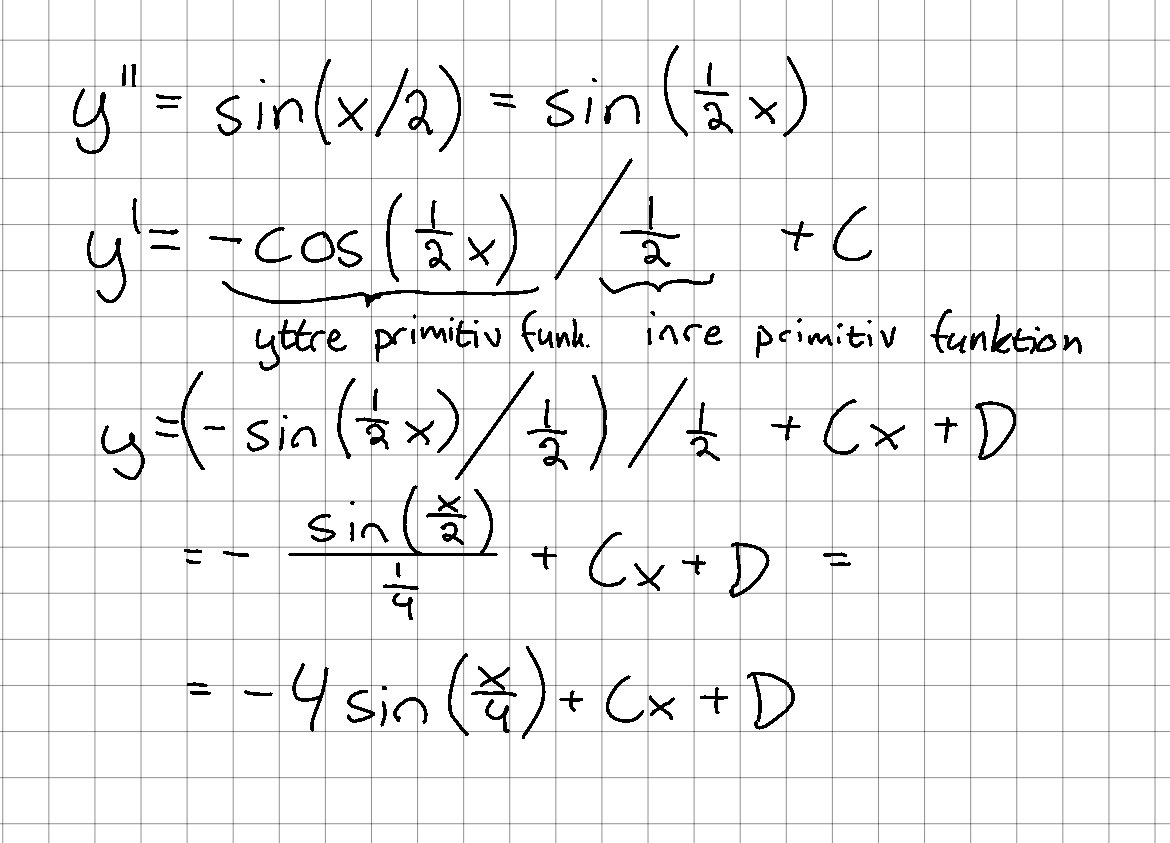 y'' = sin(x/2) = sin(1/2 x)
y' = -cos(1/2 x) / 1/2 + C
yttre primitiv funk. inre primitiv funktion
y = (-sin(1/2 x) / 1/2) / 1/2 + Cx + D
= - sin(x/2) / 1/4 + Cx + D =
= -4 sin(x/4) + Cx + D